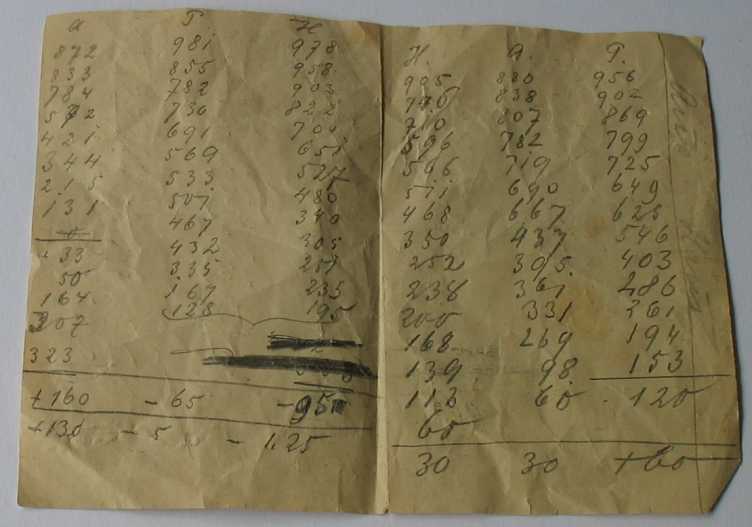 a T H
872 981 978
833 855 958
784 782 903
572 730 822
421 691 700
344 569 651
215 533 527
131 507 480
467 340
+33 432 305
50 335 257
164 167 235
207 128 195
323
+160 - 65 - 95
+130 - 5 - 1.25
H. a. T.
905 880 956
770 838 902
710 807 869
596 782 799
566 719 725
511 690 649
468 667 625
350 437 546
252 395. 403
238 361 286
200 331 261
168 269 194
139 98. 153
113 60 - 120
60
30 30 +60